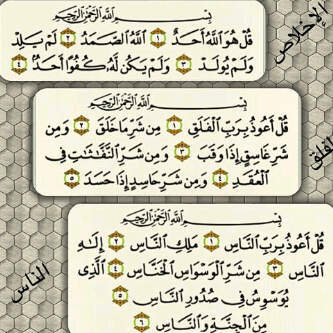 الإخلاص
بِسْمِ اللَّهِ الرَّحْمَٰنِ الرَّحِيمِ
قُلْ هُوَ اللَّهُ أَحَدٌ ١ اللَّهُ الصَّمَدُ ٢ لَمْ يَلِدْ
وَلَمْ يُولَدْ ٣ وَلَمْ يَكُن لَّهُ كُفُوًا أَحَدٌ ٤
بِسْمِ اللَّهِ الرَّحْمَٰنِ الرَّحِيمِ
قُلْ أَعُوذُ بِرَبِّ الْفَلَقِ ١ مِن شَرِّ مَا خَلَقَ ٢ وَمِن
شَرِّ غَاسِقٍ إِذَا وَقَبَ ٣ وَمِن شَرِّ النَّفَّاثَاتِ فِي
الْعُقَدِ ٤ وَمِن شَرِّ حَاسِدٍ إِذَا حَسَدَ ٥
الناس
بِسْمِ اللَّهِ الرَّحْمَٰنِ الرَّحِيمِ
قُلْ أَعُوذُ بِرَبِّ النَّاسِ ١ مَلِكِ النَّاسِ ٢ إِلَٰهِ
النَّاسِ ٣ مِن شَرِّ الْوَسْوَاسِ الْخَنَّاسِ ٤ الَّذِي
يُوَسْوِسُ فِي صُدُورِ النَّاسِ ٥
مِنَ الْجِنَّةِ وَالنَّاسِ ٦